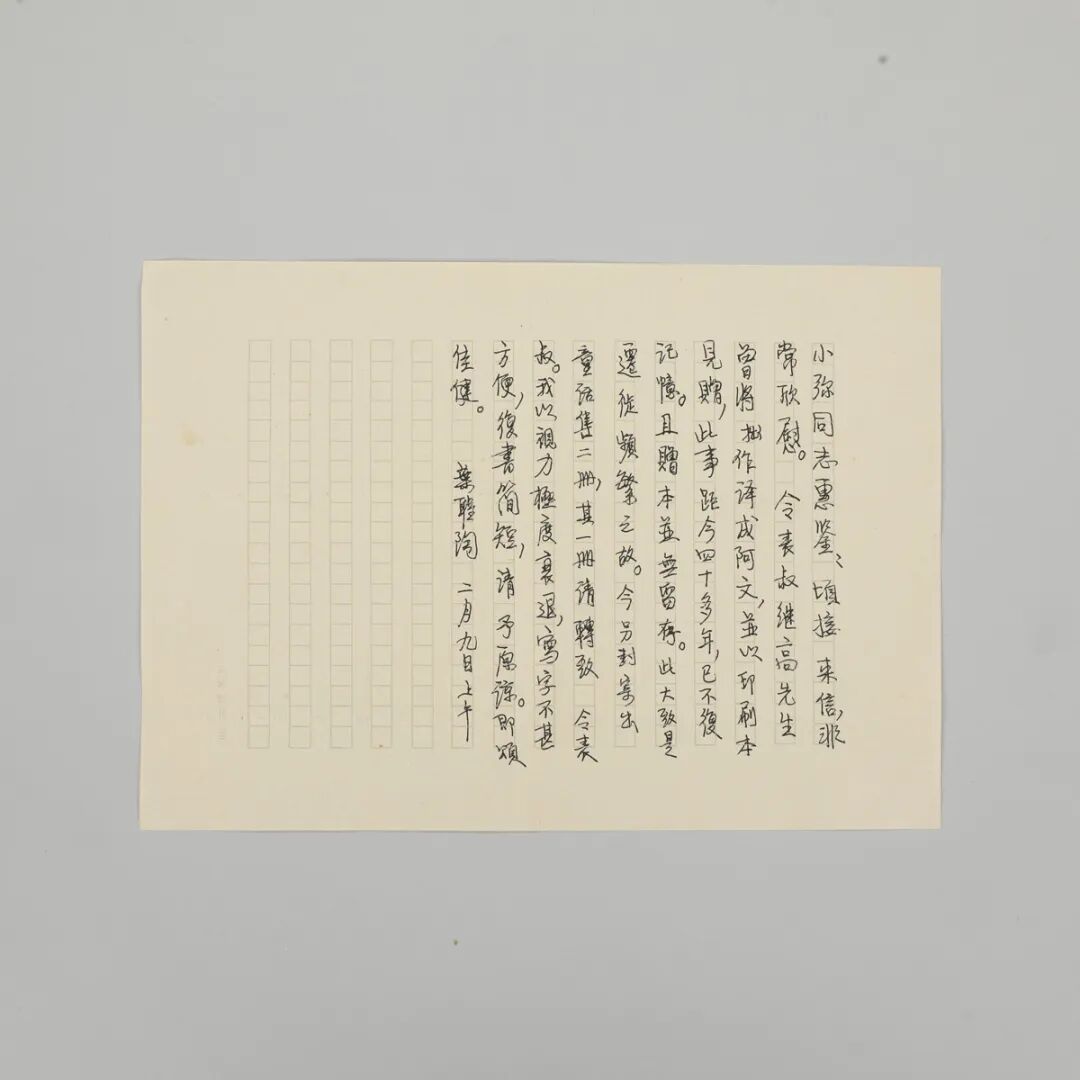 小弥同志惠鉴：顷接 来信，非
常欣慰。 令表叔继高先生
曾将拙作译成阿文，並以印刷本
見贈，此事距今四十多年，已不復
记憶。且贈本並無留存。此大致是
遷徙頻繁之故。今另封寄出
童话集二册，其一册请轉致 令表
叔。我以視力極度衰退，寫字不甚
方便，復書简短，请予原谅。即頌
佳健。 葉聖陶 二月九日上午